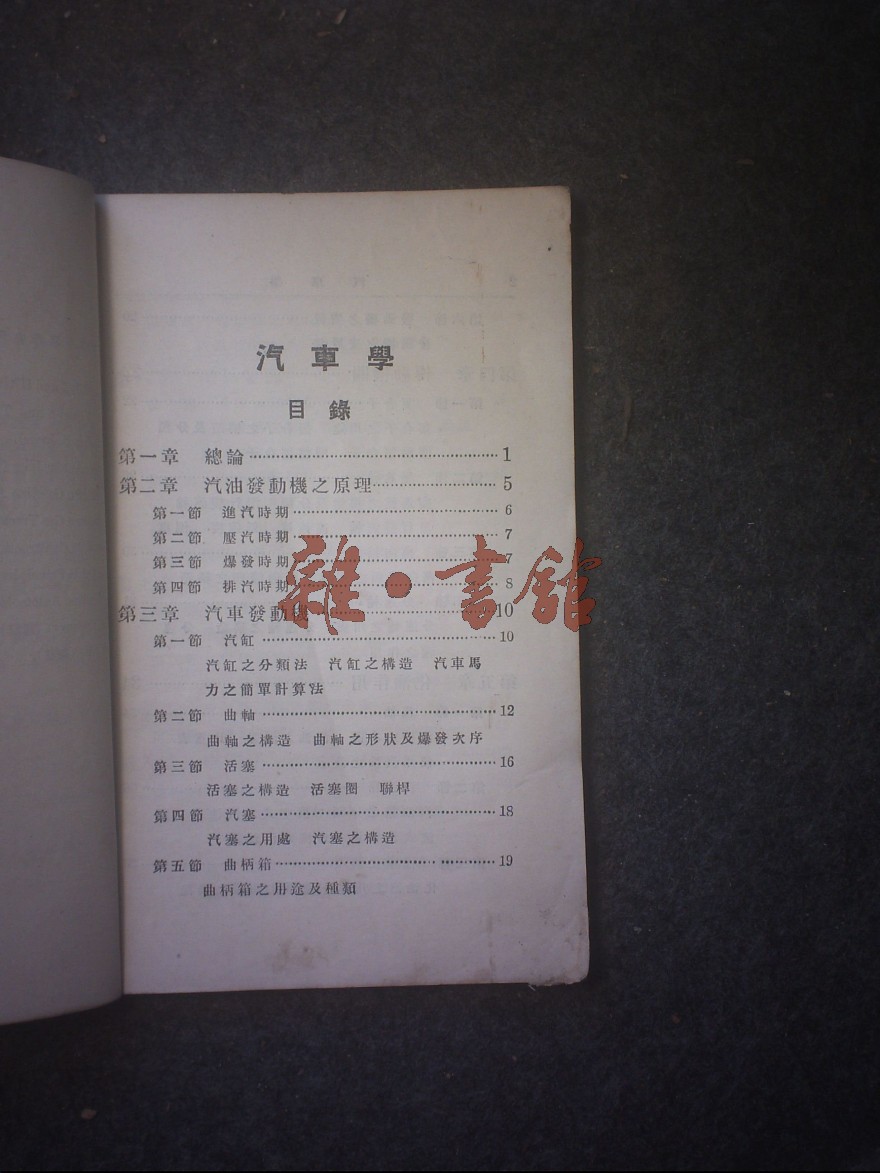 汽車學
目錄
第一章 總論 1
第二章 汽油發動機之原理 5
第一節 進汽時期 6
第二節 壓汽時期 7
第三節 爆發時期 7
第四節 排汽時期 8
雜·書館
第三章 汽車發動機 10
第一節 汽缸 10
汽缸之分類法 汽缸之構造 汽車馬
力之簡單計算法
第二節 曲軸 12
曲軸之構造 曲軸之形狀及爆發次序
第三節 活塞 16
活塞之構造 活塞圈 聯桿
第四節 汽塞 18
汽塞之用處 汽塞之構造
第五節 曲柄箱 19
曲柄箱之用途及種類